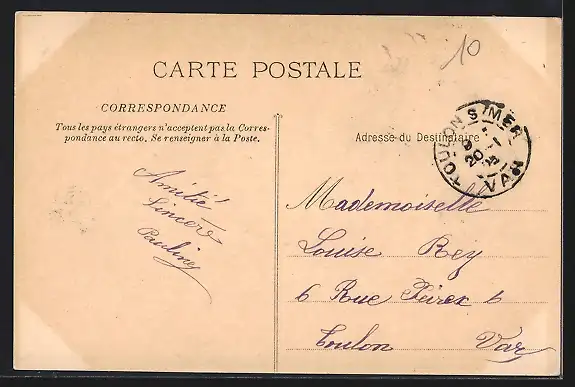 10
CARTE POSTALE
CORRESPONDANCE
Tous les pays étrangers n'acceptent pas la Corres-
pondance au recto. Se renseigner à la Poste.
Adresse du Destinataire
TOULON S MER
VAR
20
Amitié
Sincère
Pauline
Mademoiselle
Louise Rey
6 Rue 6
Toulon Var